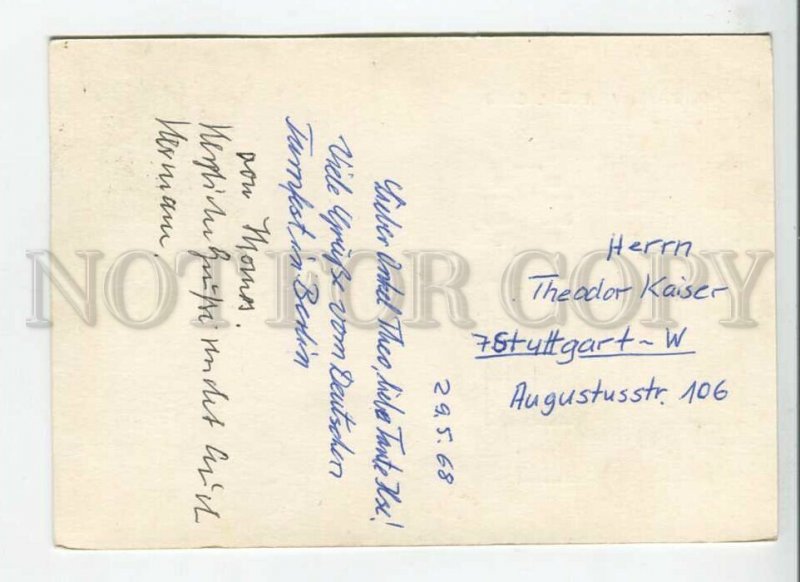 29.5.68
Lieber Onkel Theo, liebe Tante Ilse!
Viele Grüße vom Deutschen
Turnfest in Berlin
von Thomas.
Herzliche Grüße sendet Euch
Hermann.
Herrn
Theodor Kaiser
7 Stuttgart-W
Augustusstr. 106
NOT FOR COPY